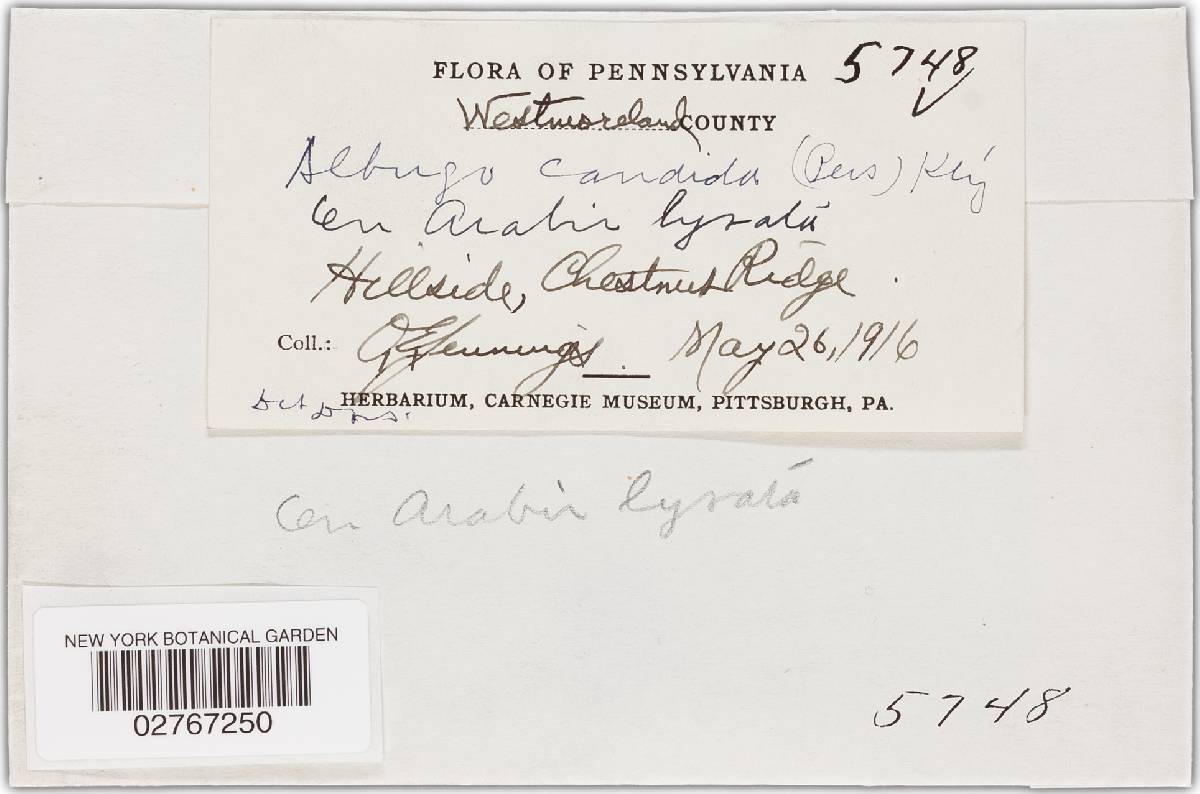 FLORA OF PENNSYLVANIA 5748
Westmoreland COUNTY
Albugo candida (Pers)
On Arabis lyrata
Hillside, Chestnut Ridge.
Coll.: O E Jennings May 26, 1916
HERBARIUM, CARNEGIE MUSEUM, PITTSBURGH, PA.
Det
On Arabis lyrata
NEW YORK BOTANICAL GARDEN
02767250
5748